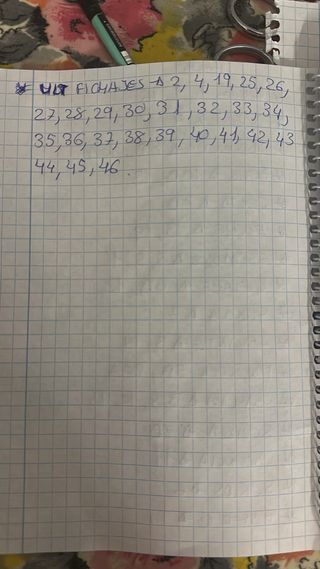 * ULT FICHAJES → 2, 4, 19, 25, 26,
27, 28, 29, 30, 31, 32, 33, 34,
35, 36, 37, 38, 39, 40, 41, 42, 43
44, 45, 46.